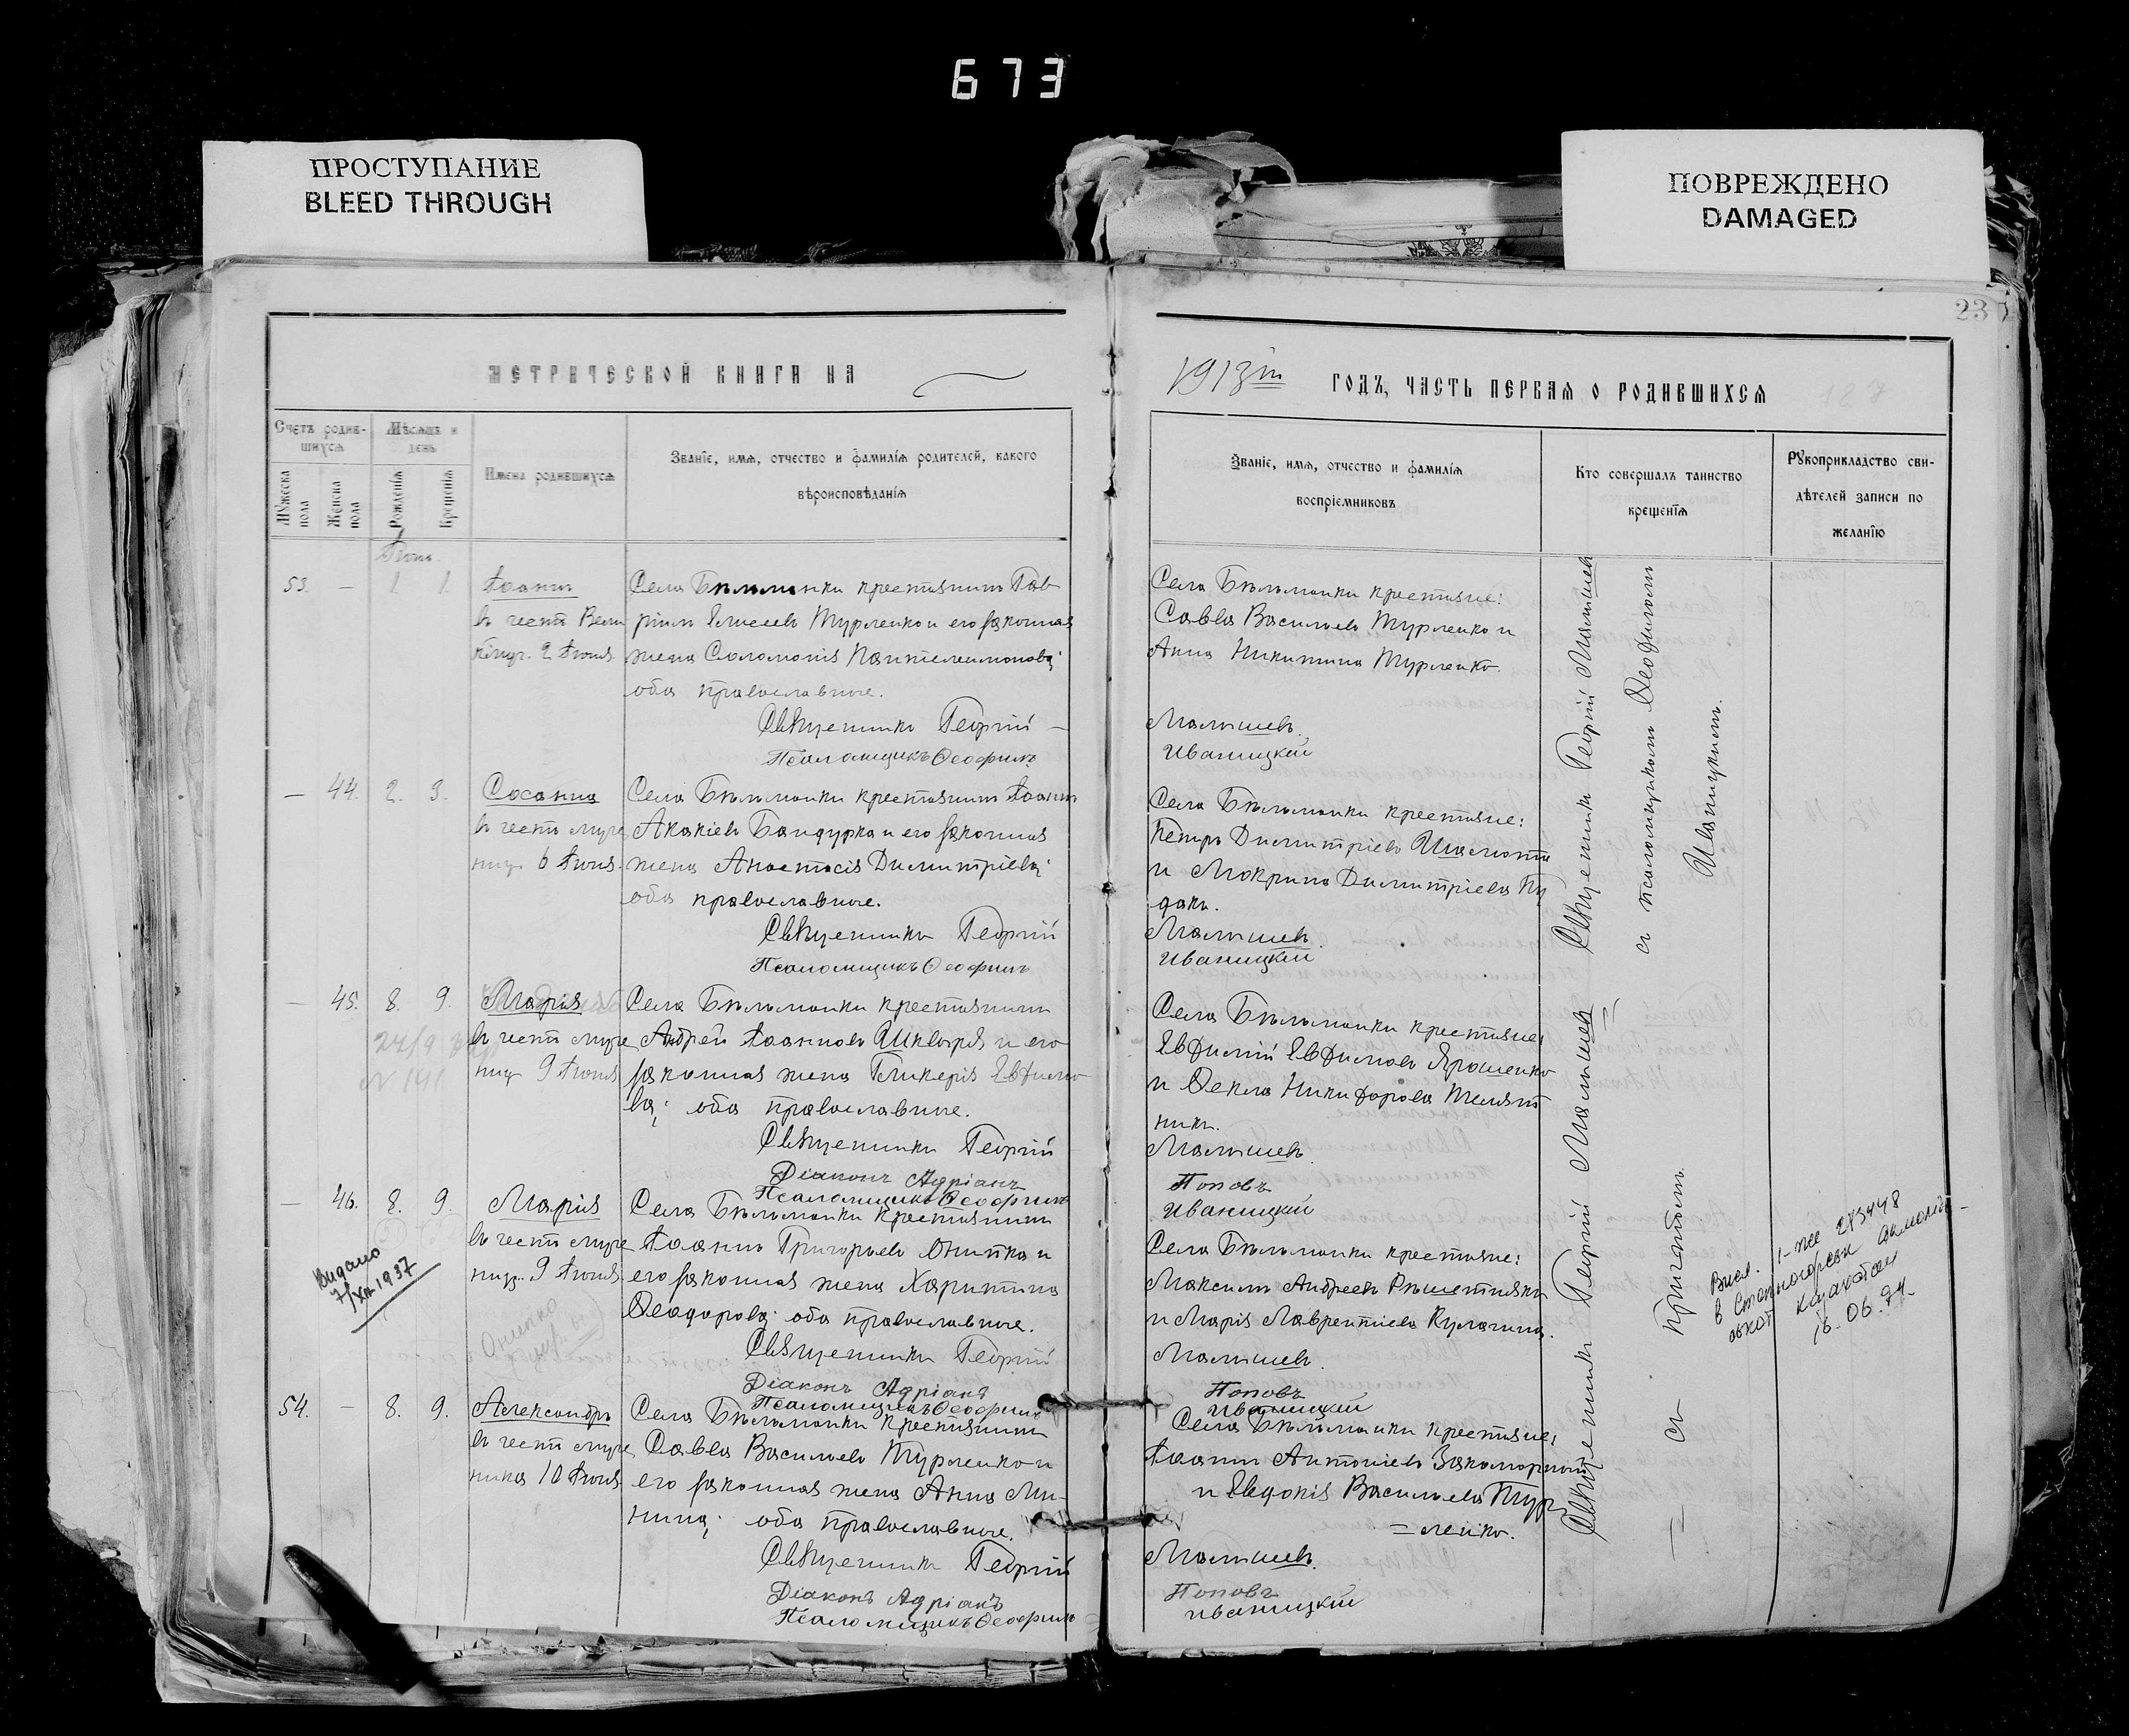 673
ПРОСТУПАНИЕ
BLEED THROUGH
ПОВРЕЖДЕНО
DAMAGED
23
МЕТРИЧЕСКОЙ КНИГИ НА
1913й ГОДЪ, ЧАСТЬ ПЕРВАЯ О РОДИВШИХСЯ
Счетъ родив-
шихся
Мужеска пола
Женска пола
Мѣсяцъ и
день
Рожденія
Крещенія
Имена родившихся
Званіе, имя, отчество и фамилія родителей, какого
вѣроисповѣданія
Званіе, имя, отчество и фамилія
воспріемниковъ
Кто совершалъ таинство
крещенія
Рукоприкладство сви-
дѣтелей записи по
желанію
53. — 1 1
Іоаннъ
въ честь Вели
2 Іюня.
Села Бѣльманки крестьянинъ Гав
ріилъ Елисеевъ Турленко и его законная
жена Соломонія Пантелеимонова;
оба православные.
Священникъ Георгій
Псаломщикъ Ѳеофилъ
Села Бѣльманки крестьяне:
Савва Васильевъ Турленко и
Анна Никитина Турленко.
Малышевъ.
Иваницкій
— 44. 2. 3.
Сосанна
въ честь муче
ниц. 6 Іюня.
Села Бѣльманки крестьянинъ Іоаннъ
Акакіевъ Бандурка и его законная
жена Анастасія Димитріева;
оба православные.
Священникъ Георгій
Псаломщикъ Ѳеофилъ
Села Бѣльманки крестьяне:
Петръ Димитріевъ Шамота
и Мокрина Димитріева Ку
дакъ.
Малышевъ.
Иваницкій
Священникъ Георгій Малышевъ
съ псаломщикомъ Ѳеофиломъ
Иваницкимъ.
— 45. 8. 9.
Марія
въ честь муче
ниц. 9 Іюня
Села Бѣльманки крестьянинъ
Андрей Іоанновъ Шквыря и его
законная жена Гликерія Евдимо
ва; оба православные.
Священникъ Георгій
Діаконъ Адріанъ
Псаломщикъ Ѳеофилъ
Села Бѣльманки крестьяне:
Евдимій Евдимовъ Ярошенко
и Ѳекла Никифорова Телят
никъ.
Малышевъ
Поповъ
Иваницкій
— 46. 8. 9.
Марія
въ честь муче
ниц. 9 Іюня.
Видано
7/XII 1937
Онипко
Села Бѣльманки крестьянинъ
Іоаннъ Григорьевъ Онипко и
его законная жена Харитина
Ѳеодорова; оба православные.
Священникъ Георгій
Діаконъ Адріанъ
Псаломщикъ Ѳеофилъ
Села Бѣльманки крестьяне:
Максимъ Андреевъ Рѣшетнякъ
и Марія Лаврентіева Кулагина.
Малышевъ.
Поповъ
Иваницкій
Выд. I-ЖС 273448
в Степногорск Акмолин-
ской Казахстан
16.06.94
54. — 8. 9.
Александръ
въ честь муче
ника 10 Іюня.
Села Бѣльманки крестьянинъ
Савва Васильевъ Турленко и
его законная жена Анна Ми-
нина; оба православные.
Священникъ Георгій
Діаконъ Адріанъ
Псаломщикъ Ѳеофилъ
Села Бѣльманки крестьяне:
Іоаннъ Антоніевъ Закоморный
и Евдокія Васильева Тур
=ленко.
Малышевъ.
Поповъ
Иваницкій
Священникъ Георгій Малышевъ
= съ причтомъ.